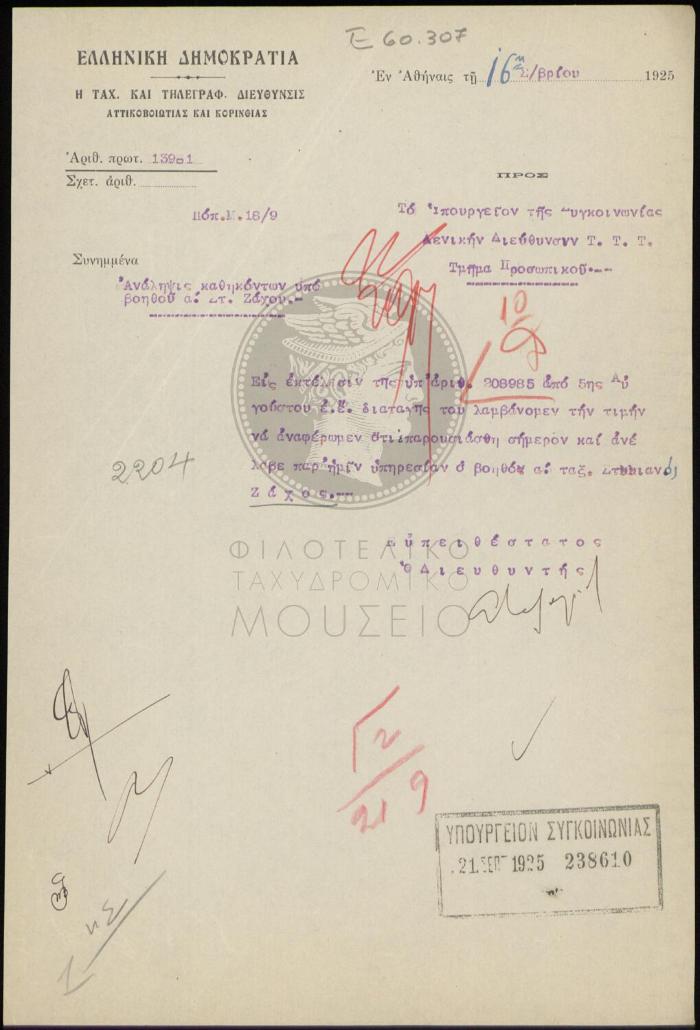 Ε 60.307
ΕΛΛΗΝΙΚΗ ΔΗΜΟΚΡΑΤΙΑ
Η ΤΑΧ. ΚΑΙ ΤΗΛΕΓΡΑΦ. ΔΙΕΥΘΥΝΣΙΣ
ΑΤΤΙΚΟΒΟΙΩΤΙΑΣ ΚΑΙ ΚΟΡΙΝΘΙΑΣ
Ἐν Ἀθήναις τῇ 16 Σ/βρίου 1925
Ἀριθ. πρωτ. 13901
Σχετ. ἀριθ.
Πόπ.Μ.16/9
ΠΡΟΣ
Τό Ὑπουργεῖον τῆς Συγκοινωνίας
Γενικήν Διεύθυνσιν Τ. Τ. Τ.
Τμῆμα Προσωπικοῦ.--
Συνημμένα
Ἀνάληψις καθηκόντων ὑπό
βοηθοῦ α. Στ. Ζάχου.-
10
Εἰς ἐκτέλεσιν τῆς ὑπ'ἀριθ. 208985 ἀπό 5ης Αὐ
γούστου ἐ.ἔ. διαταγῆς του λαμβάνομεν τήν τιμήν
νά ἀναφέρωμεν ὅτι ἐπαρουσιάσθη σήμερον καί ἀνέ
λαβε παρ'ἡμῖν ὑπηρεσίαν ὁ βοηθός α. ταξ. Στυλιανός
Ζάχος.--
2204
Εὐπειθέστατος
Ὁ Διευθυντής
ΦΙΛΟΤΕΛΙΚΟ
ΤΑΧΥΔΡΟΜΙΚΟ
ΜΟΥΣΕΙΟ
Γ2
21 9
ΥΠΟΥΡΓΕΙΟΝ ΣΥΓΚΟΙΝΩΝΙΑΣ
21 ΣΕΠ 1925 238610